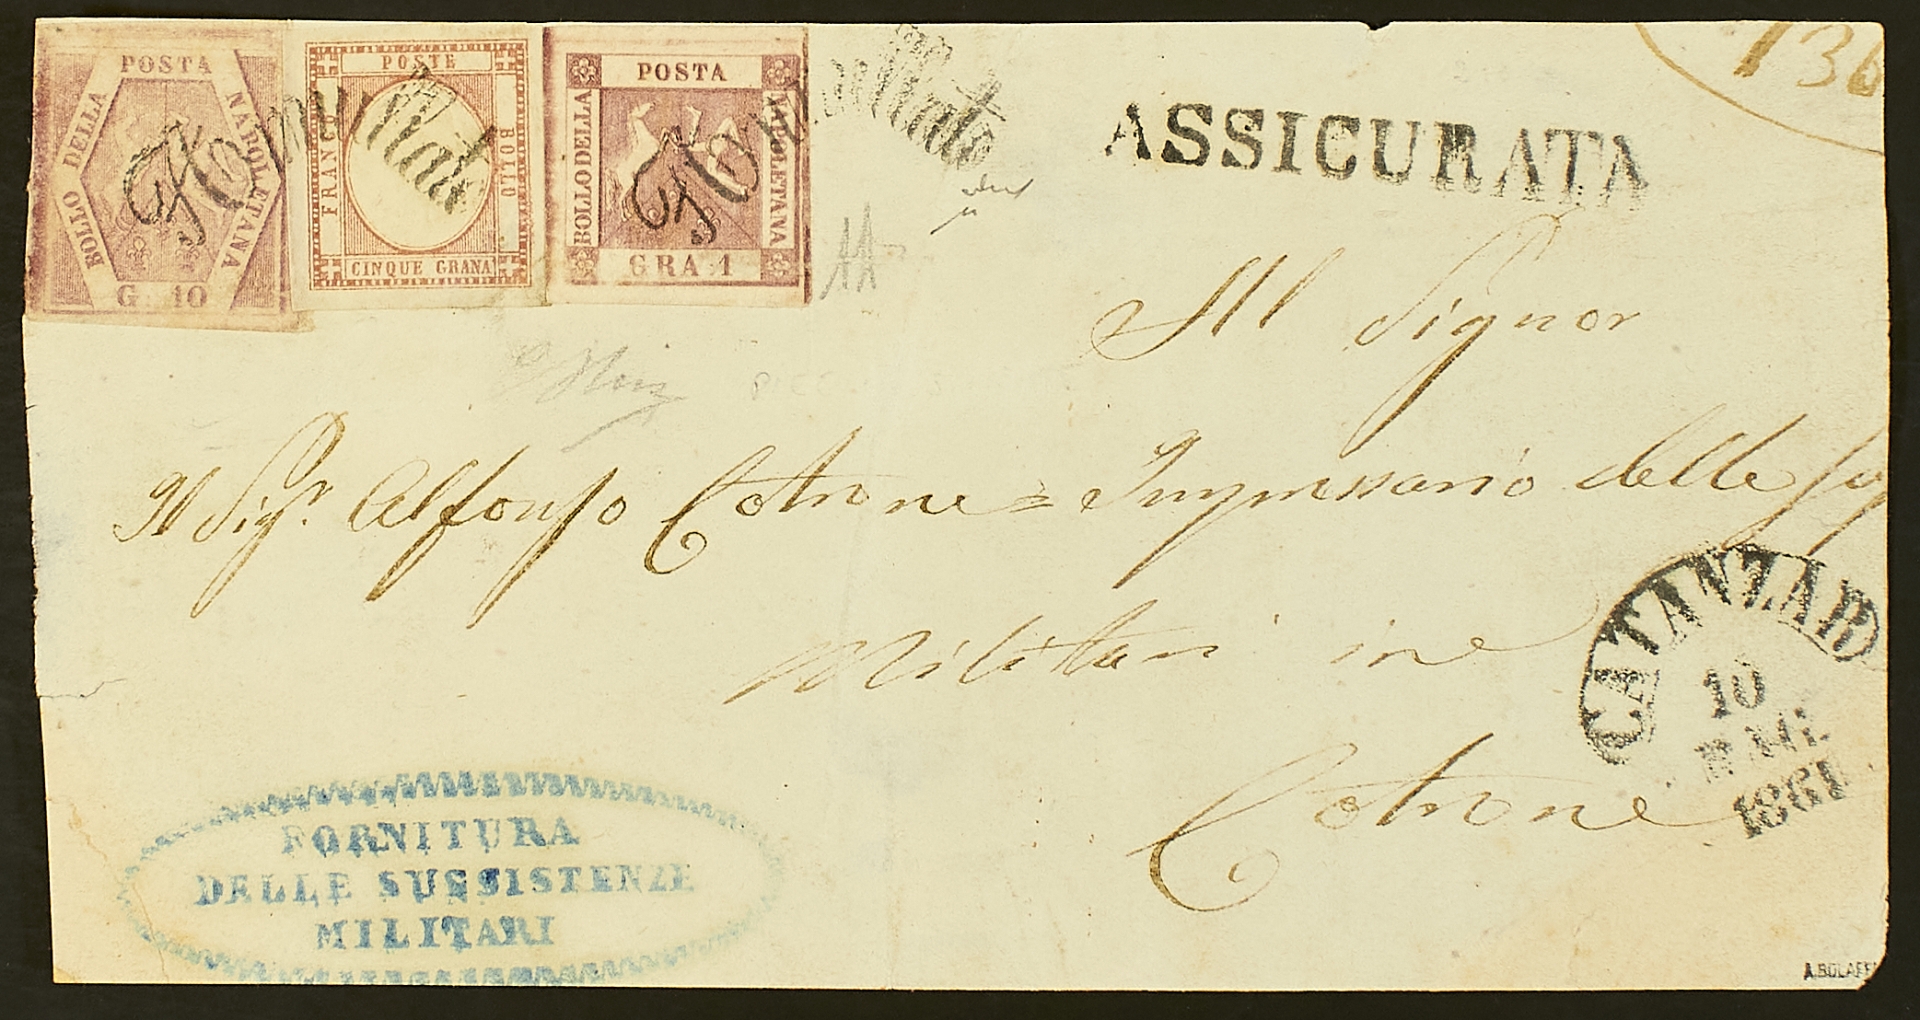 POSTA
BOLLO DELLA
NAPOLETANA
G 10
POSTE
FRANCO
BOLLO
CINQUE GRANA
POSTA
BOLLO DELLA
NAPOLETANA
GRA 1
Annullato
Annullato
136
ASSICURATA
Al Signor
Il Sigr. Alfonso Cotrone = Impressario delle
Militari in
Cotrone
CATANZARO
10
MAG.
1861
FORNITURA
DELLE SUSSISTENZE
MILITARI
A.BOLAFFI